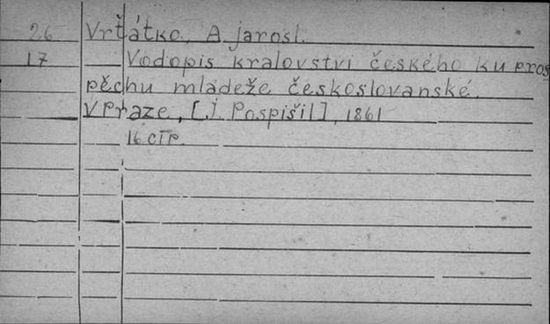 26 Vrťátko, A. jarosl.
17 Vodopis kralovstvi českého ku pros
pěchu mládeže českoslovanské.
V Praze, [J. Pospišil], 1861
16 стр.